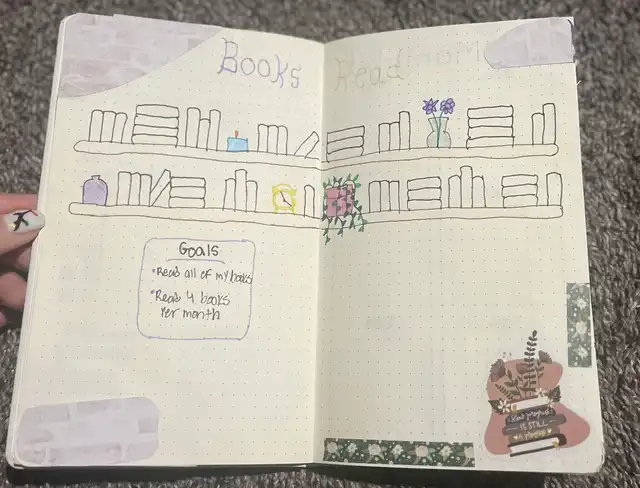 Books Read
Goals
*Read all of my books
*Read 4 books
Per month
Slow progress
IS STILL
progress